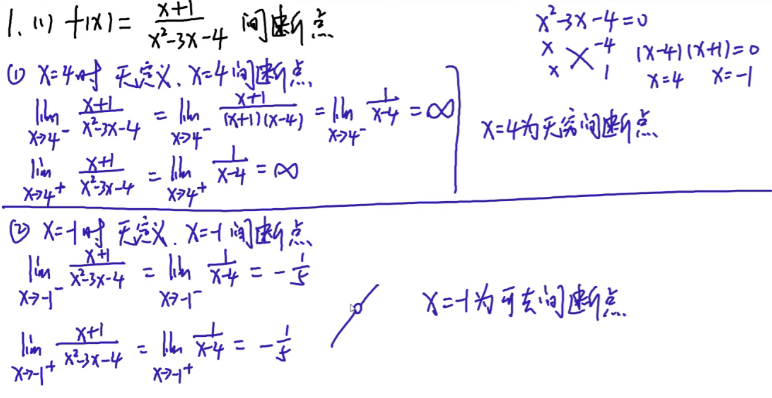 1. (1) f(x) = \frac{x+1}{x^2-3x-4} 间断点
x^2-3x-4=0
x -4
x 1
(x-4)(x+1)=0
x=4 x=-1
① x=4时 无定义. x=4间断点
\lim_{x→4^-} \frac{x+1}{x^2-3x-4} = \lim_{x→4^-} \frac{x+1}{(x+1)(x-4)} = \lim_{x→4^-} \frac{1}{x-4} = ∞
\lim_{x→4^+} \frac{x+1}{x^2-3x-4} = \lim_{x→4^+} \frac{1}{x-4} = ∞
x=4为无穷间断点
② x=-1时 无定义. x=-1间断点
\lim_{x→-1^-} \frac{x+1}{x^2-3x-4} = \lim_{x→-1^-} \frac{1}{x-4} = -\frac{1}{5}
\lim_{x→-1^+} \frac{x+1}{x^2-3x-4} = \lim_{x→-1^+} \frac{1}{x-4} = -\frac{1}{5}
x=-1为可去间断点